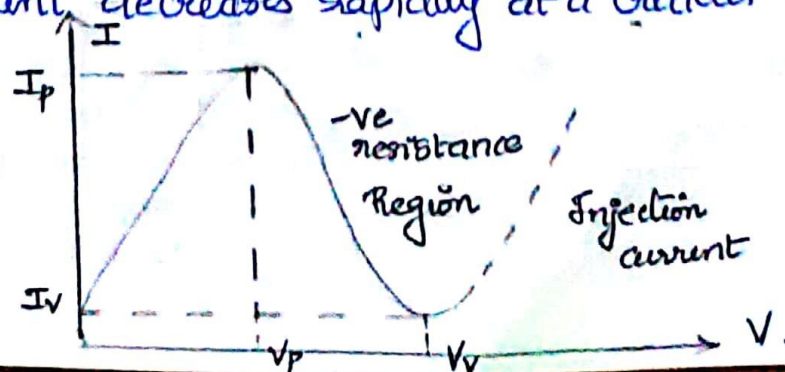 decreases rapidly at a
I
Ip
-ve
resistance
Region
Injection
current
Iv
V
Vp
Vv